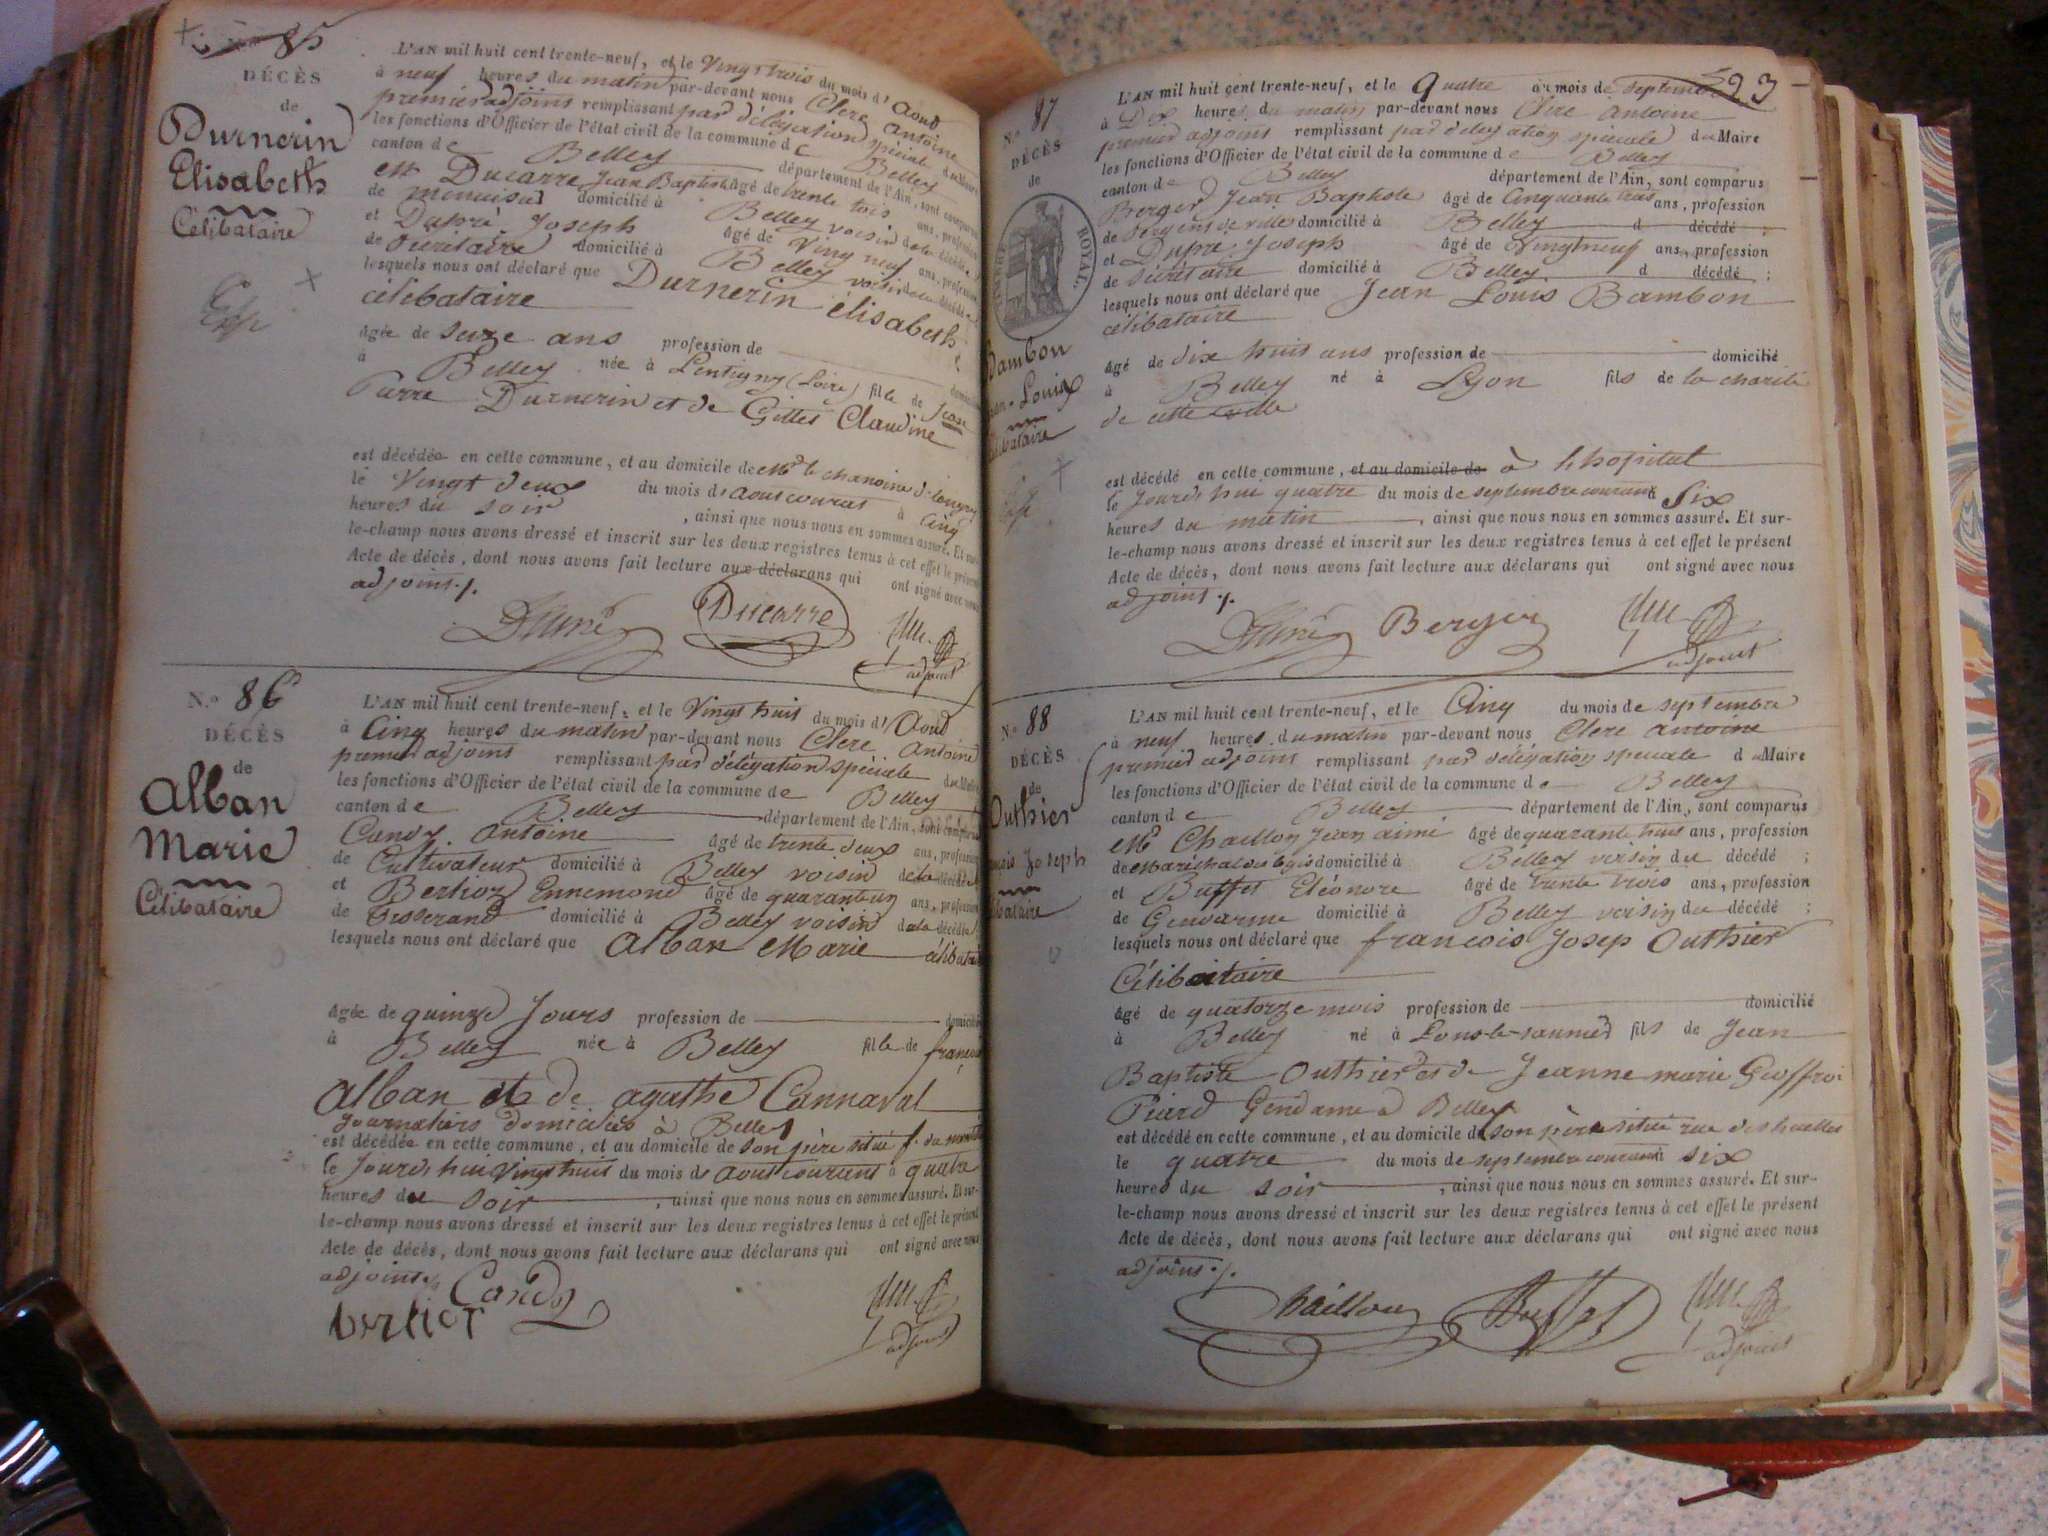 85
DÉCÈS
de
Durnerin
Elisabeth
Célibataire
L'AN mil huit cent trente-neuf, et le Vingt trois du mois d'Aoust
à neuf heures du matin par-devant nous Clerc Antoine
premier adjoint remplissant par délégation spéciale du Maire
les fonctions d'Officier de l'état civil de la commune de Belley
canton de Belley département de l'Ain, sont comparus
Mr Ducarre Jean Baptiste âgé de trente trois ans, profession
de menuisier domicilié à Belley voisin de la décédée
et Dupré Joseph âgé de Vingt neuf ans, profession
de Secrétaire domicilié à Belley voisin de la décédée
lesquels nous ont déclaré que Durnerin élisabeth
célibataire
âgée de seize ans profession de domicilié
à Belley née à Lentigny (Loire) fille de Jean
Pierre Durnerin et de Gilles Claudine
est décédée en cette commune, et au domicile de Mr le chanoine de
le Vingt deux du mois d'aoust courant à Cinq
heures du soir , ainsi que nous nous en sommes assuré. Et sur-
le-champ nous avons dressé et inscrit sur les deux registres tenus à cet effet le présent
Acte de décès, dont nous avons fait lecture aux déclarans qui ont signé avec nous
adjoint ./.
Dupré Ducarre
adjoint
N.o 86
DÉCÈS
de
Alban
Marie
Célibataire
L'AN mil huit cent trente-neuf, et le Vingt huit du mois d'Aoust
à Cinq heures du matin par-devant nous Clerc Antoine
premier adjoint remplissant par délégation spéciale du Maire
les fonctions d'Officier de l'état civil de la commune de Belley
canton de Belley département de l'Ain, sont comparus
Candy Antoine âgé de trente deux ans, profession
de Cultivateur domicilié à Belley voisin de la décédée
et Berlioz Ennemond âgé de quarante un ans, profession
de Tisserand domicilié à Belley voisin de la décédée
lesquels nous ont déclaré que Alban Marie célibataire
âgée de quinze Jours profession de domicilié
à Belley née à Belley fille de françois
Alban et de agathe Cannaval
Journaliers domiciliés à Belley
est décédée en cette commune, et au domicile de son père situé f. du
le Jourd'hui Vingt huit du mois d'aout courant à quatre
heures du soir , ainsi que nous nous en sommes assuré. Et sur-
le-champ nous avons dressé et inscrit sur les deux registres tenus à cet effet le présent
Acte de décès, dont nous avons fait lecture aux déclarans qui ont signé avec nous
adjoint ./. Candy
berlioz
adjoint
23
N.o 87
DÉCÈS
de
TIMBRE ROYAL.
Bambon
Jean-Louis
Célibataire
L'AN mil huit cent trente-neuf, et le Quatre du mois de septembre
à Dix heures du matin par-devant nous Clerc Antoine
premier adjoint remplissant par délégation spéciale du Maire
les fonctions d'Officier de l'état civil de la commune de Belley
canton de Belley département de l'Ain, sont comparus
Berger Jean Baptiste âgé de Cinquante trois ans, profession
de Sergent de ville domicilié à Belley d décédé ;
et Dupré Joseph âgé de Vingt neuf ans, profession
de Sécrétaire domicilié à Belley d décédé ;
lesquels nous ont déclaré que Jean Louis Bambon
célibataire
âgé de dix huit ans profession de domicilié
à Belley né à Lyon fils de la charité
de cette ville
est décédé en cette commune, et au domicile de à l'hopital
le Jourd'hui quatre du mois de septembre courant à Six
heures du matin , ainsi que nous nous en sommes assuré. Et sur-
le-champ nous avons dressé et inscrit sur les deux registres tenus à cet effet le présent
Acte de décès, dont nous avons fait lecture aux déclarans qui ont signé avec nous
adjoint ./.
Dupré Berger
adjoint
N.o 88
DÉCÈS
de
Outhier
françois Joseph
Célibataire
L'AN mil huit cent trente-neuf, et le Cinq du mois de septembre
à neuf heures du matin par-devant nous Clerc Antoine
premier adjoint remplissant par délégation spéciale du Maire
les fonctions d'Officier de l'état civil de la commune de Belley
canton de Belley département de l'Ain, sont comparus
Mr Chaillon Jean aimé âgé de quarante huit ans, profession
de Maréchal des logis domicilié à Belley voisin du décédé ;
et Buffet Eléonore âgé de trente trois ans, profession
de Gendarme domicilié à Belley voisin du décédé ;
lesquels nous ont déclaré que françois Josep Outhier
Célibataire
âgé de quatorze mois profession de domicilié
à Belley né à Lons-le-saunier fils de Jean
Baptiste Outhier et de Jeanne marie Geoffroi
Piard Gendarme à Belley
est décédé en cette commune, et au domicile de son père située rue des halles
le quatre du mois de septembre courant à six
heures du soir , ainsi que nous nous en sommes assuré. Et sur-
le-champ nous avons dressé et inscrit sur les deux registres tenus à cet effet le présent
Acte de décès, dont nous avons fait lecture aux déclarans qui ont signé avec nous
adjoint ./.
Chaillon Buffet
adjoint